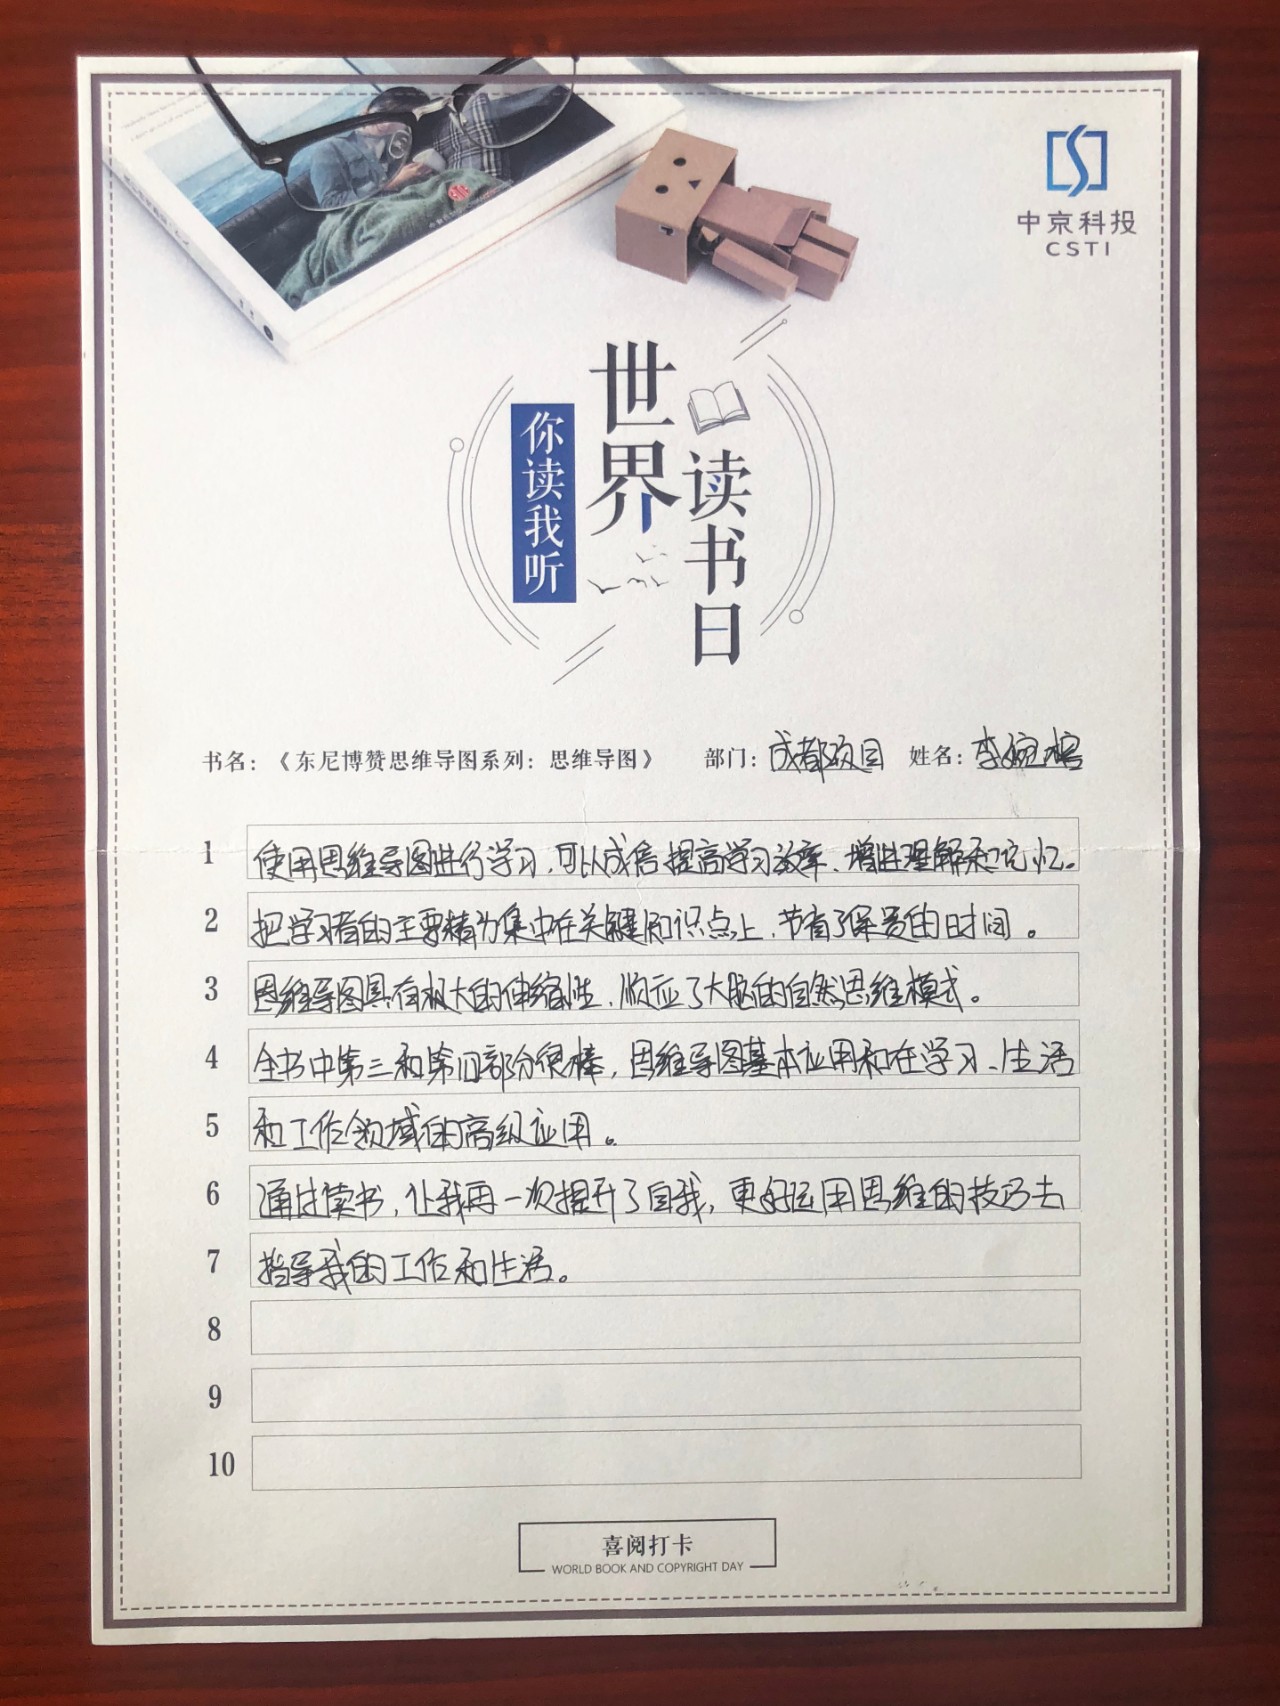 中京科投
CSTI
世界
读书日
你读我听
书名：《东尼博赞思维导图系列：思维导图》 部门：成都项目 姓名：李婉榕
1 使用思维导图进行学习，可以成倍提高学习效率，增进理解和记忆。
2 把学习者的主要精力集中在关键知识点上，节省了宝贵的时间。
3 思维导图具有极大的伸缩性，顺应了大脑的自然思维模式。
4 全书中第三和第四部分很棒，思维导图基本应用和在学习、生活
5 和工作领域的高级应用。
6 通过读书，让我再一次提升了自我，更好运用思维的技巧去
7 指导我的工作和生活。
8
9
10
喜阅打卡
WORLD BOOK AND COPYRIGHT DAY